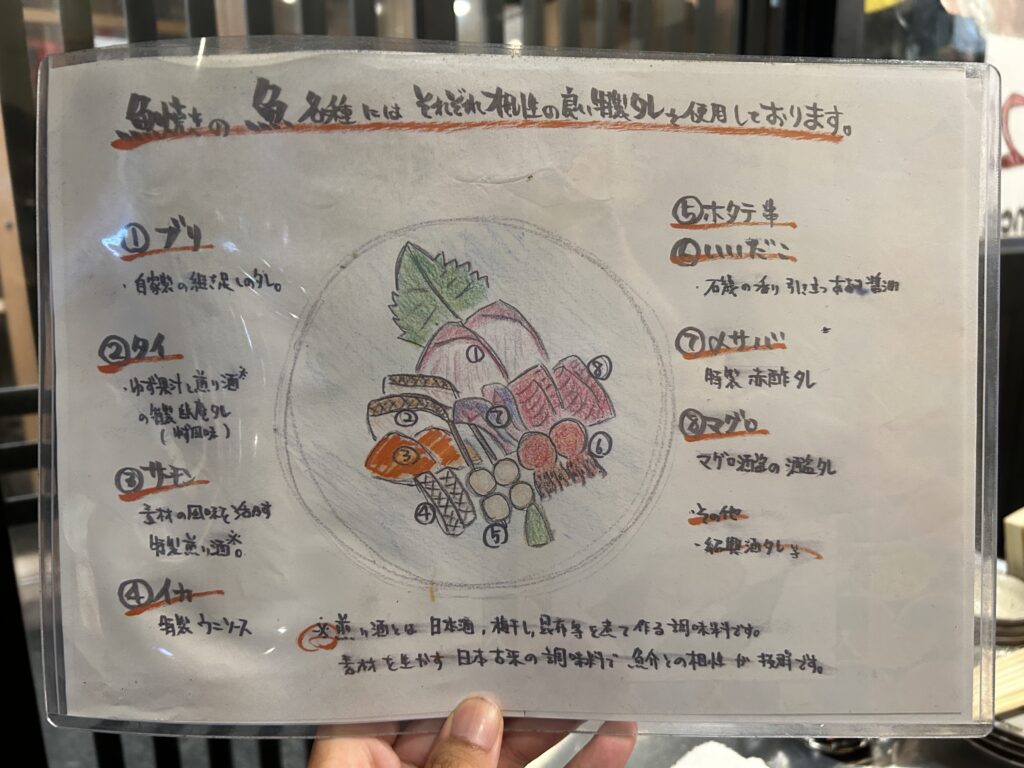 魚焼きの魚各種にはそれぞれ相性の良い特製タレを使用しております。
①ブリ
・自家製の継ぎ足しのタレ。
②タイ
・ゆず果汁と煎り酒※
の特製 タレ
③サーモン
素材の風味を活かす
特製煎り酒※。
④イカ
特製 ウニソース
⑤ホタテ串
⑥いいだこ
・石焼の香り引き立つ 醤油
⑦〆サバ
特製 赤酢タレ
⑧マグロ
マグロ酒盗の酒盗タレ
・その他
・紹興酒タレ等
① ② ③ ④ ⑤ ⑥ ⑦ ⑧
※煎り酒とは 日本酒、梅干し、昆布等を煮て作る調味料です。
素材を生かす 日本古来の調味料で 魚介との相性が 抜群です。